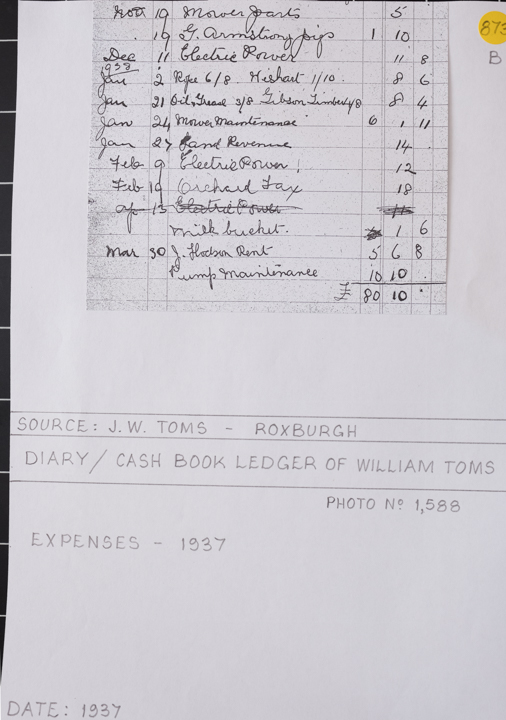 Nov 19 Mower Parts 5
873
" 19 G. Armstrong pigs 1 10
B
Dec 11 Electric Power 11 8
1938
Jan 2 Rope 6/8 1/10. 8 6
Jan 21 Oil & Grease 3/8 Gibson Timber 4/8 8 4
Jan 24 Mower Maintenance 6 1 11
Jan 27 Land Revenue 14 .
Feb 9 Electric Power 12
Feb 19 Orchard Tax 18
Ap 13 Electric Power 11
Milk bucket. 1 6
Mar 30 J. Hodson Rent 5 6 8
Pump Maintenance 10 10 .
£ 80 10 "
SOURCE: J.W. TOMS - ROXBURGH
DIARY/CASH BOOK LEDGER OF WILLIAM TOMS
PHOTO Nº 1,588
EXPENSES - 1937
DATE: 1937